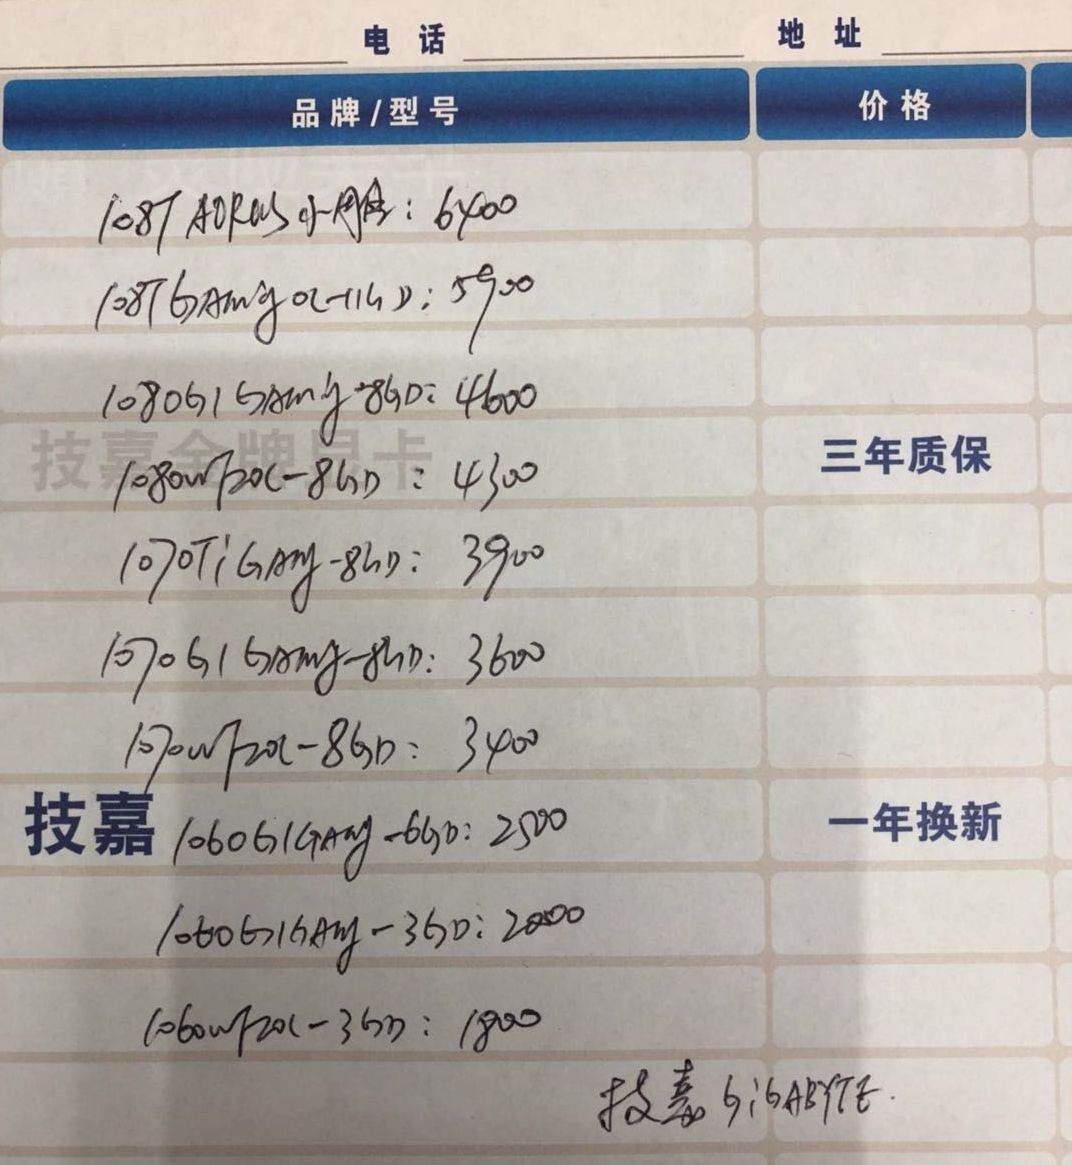 电话 地址
品牌/型号 价格
108T AORUS 小雕: 6400
108T GAming OC-11GD: 5900
1080 G1 GAming-8GD: 4600
技嘉金牌显卡 三年质保
1080WF2OC-8GD: 4300
1070Ti GAmg-8GD: 3900
1070 G1 GAmg-8GD: 3600
1070WF2OC-8GD: 3400
技嘉 1060 G1 GAmg-6GD: 2500 一年换新
1060 G1 GAmg-3GD: 2000
1060WF2OC-3GD: 1800
技嘉 GiGABYTE.